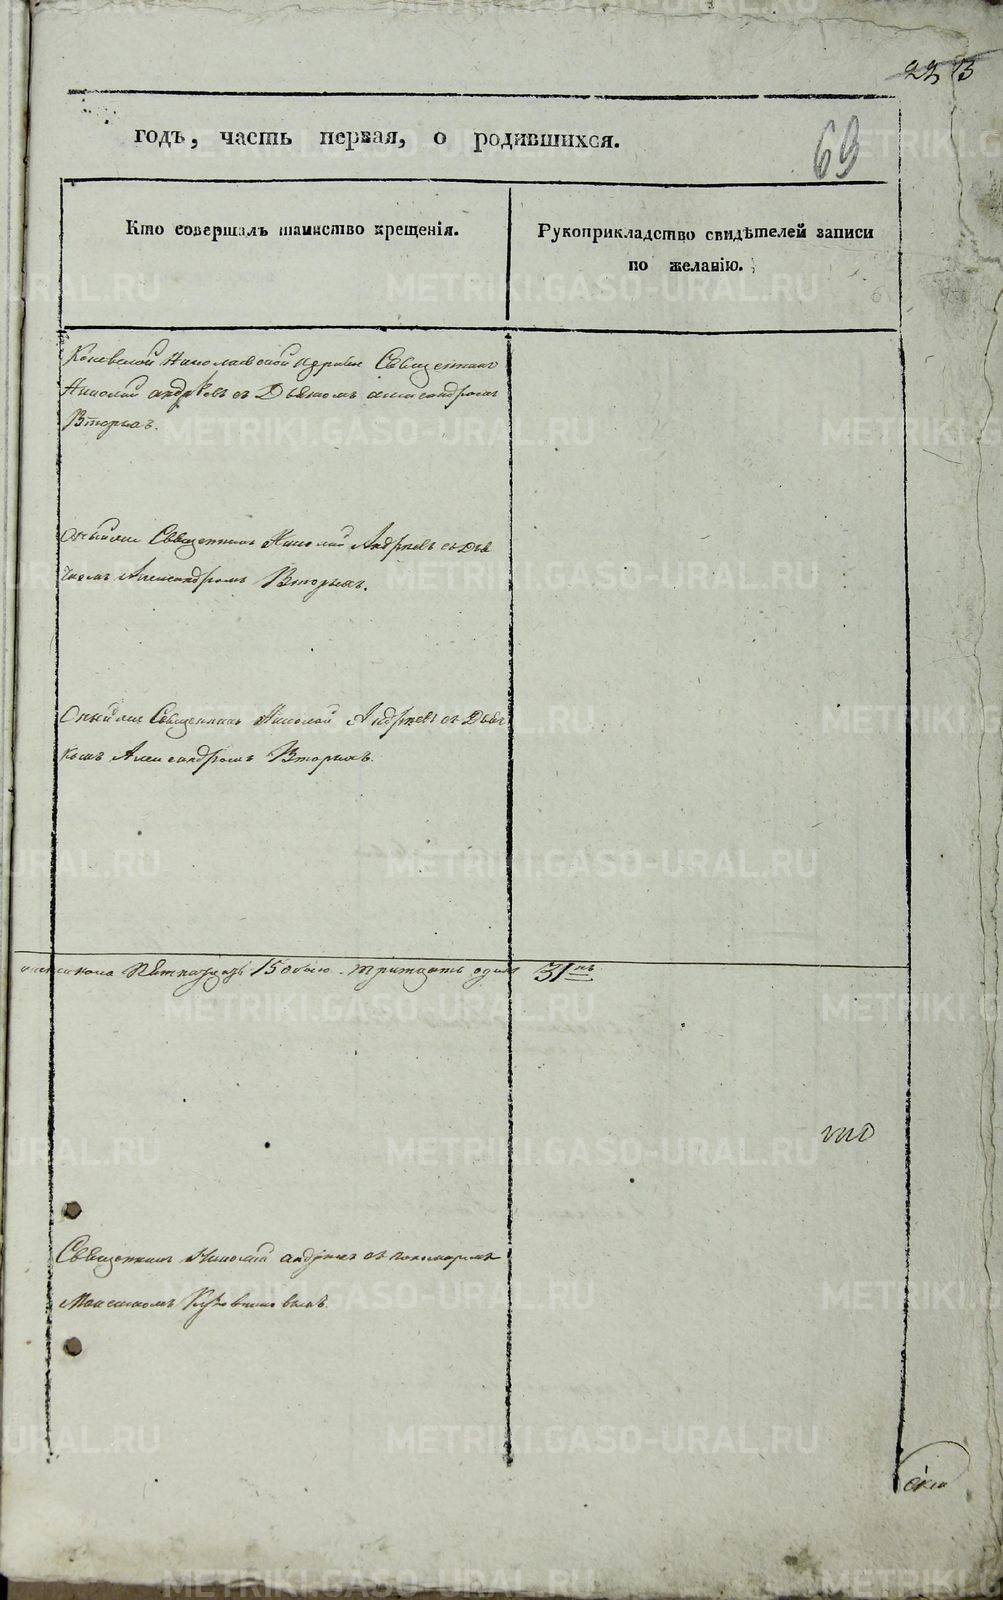 22 13
годъ, часть первая, о родившихся.
69
Кто совершалъ таинство крещенія.
Рукоприкладство свидѣтелей записи
по желанію.
Коневской Николаевской церкви Священникъ
Николай андреевъ съ Дьякомъ александромъ
Вторыхъ.
Оный же Священникъ Николай Андреевъ съ Дья
чкомъ Александромъ Вторыхъ.
Оный же Священникъ Николай Андреевъ съ Дьяч
комъ Александромъ Вторыхъ.
женска пола Пятнадцать 15 обоего тритцать одинъ 31нъ
Священникъ Николай андреевъ съ пономаремъ
Максимомъ
METRIKI.GASO-URAL.RU